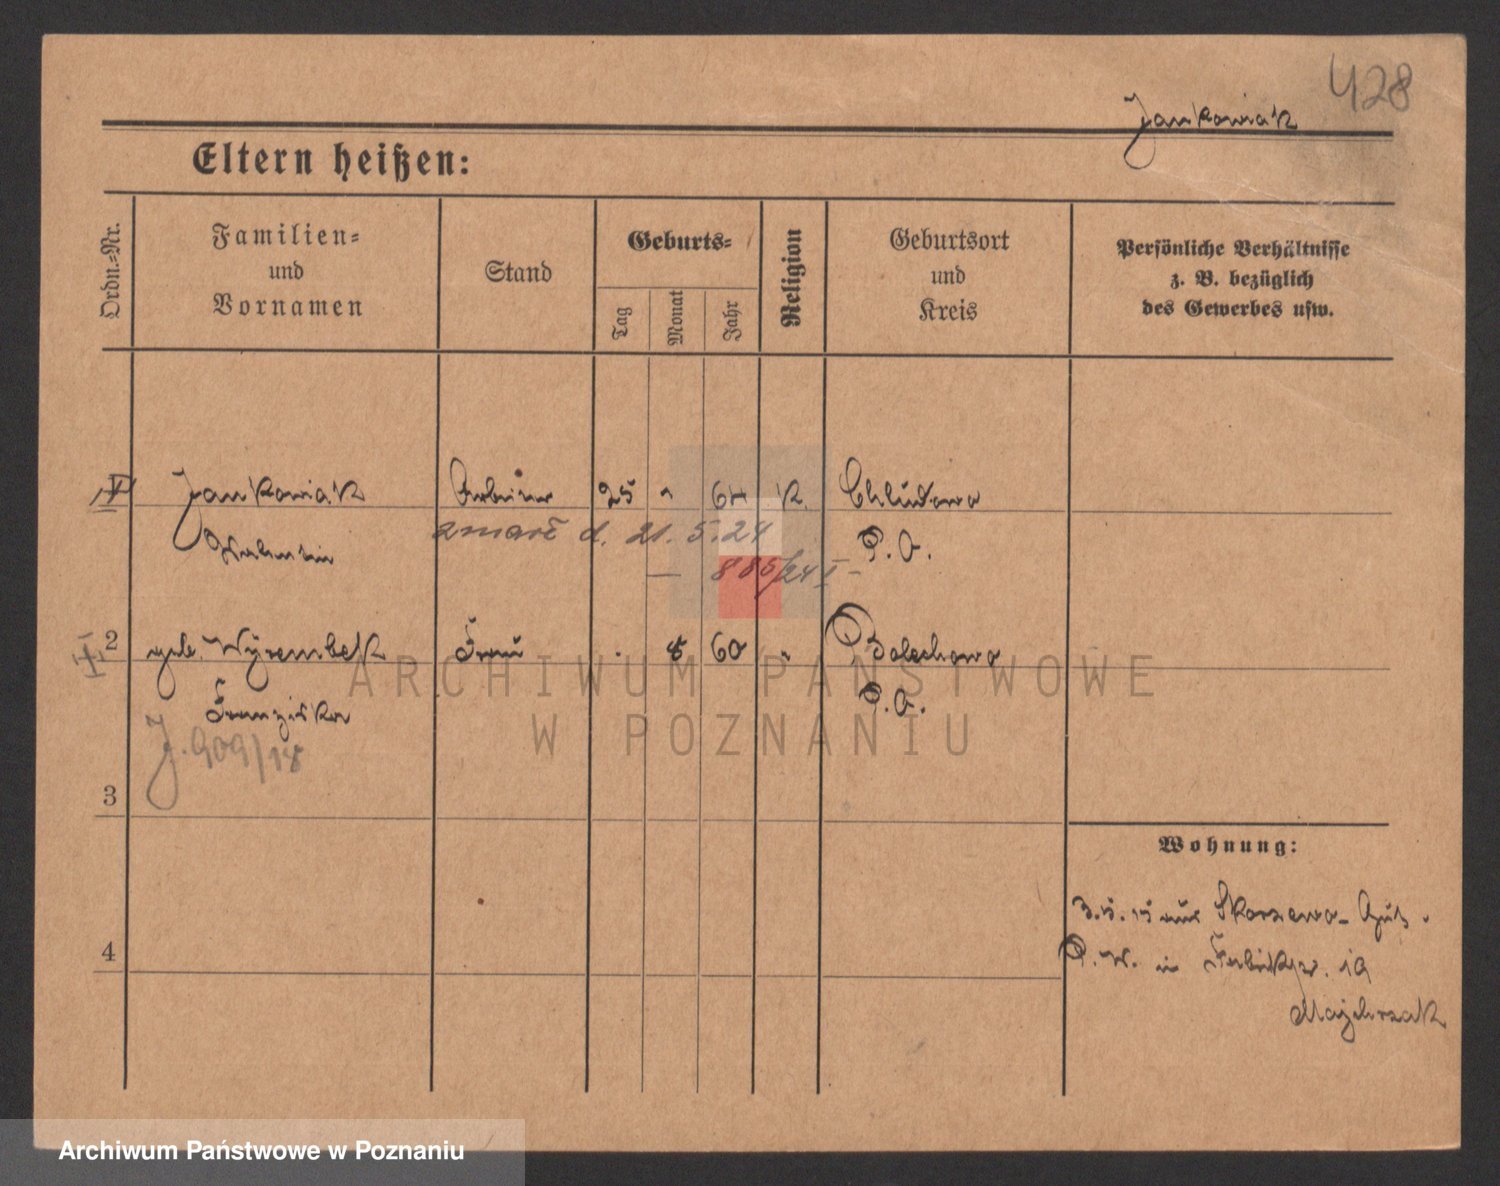 428
Jankowiak
Eltern heißen:
Ordn.=Nr.
Familien=
und
Vornamen
Stand
Geburts=
Tag
Monat
Jahr
Religion
Geburtsort
und
Kreis
Persönliche Verhältnisse
z. B. bezüglich
des Gewerbes usw.
Jankowiak
Arbeiter
25
64
K.
Chludowo
Valentin
P. O.
zmarł d. 21. 5. 24
885/24 I
2
geb. Wyrembek
Frau
8
60
"
Bolechowo
Franziska
P. O.
J. 909/18
3
Wohnung:
Skorzewo - Gut
P. W. in 19
Majchrzak
4
ARCHIWUM PAŃSTWOWE
W POZNANIU
Archiwum Państwowe w Poznaniu